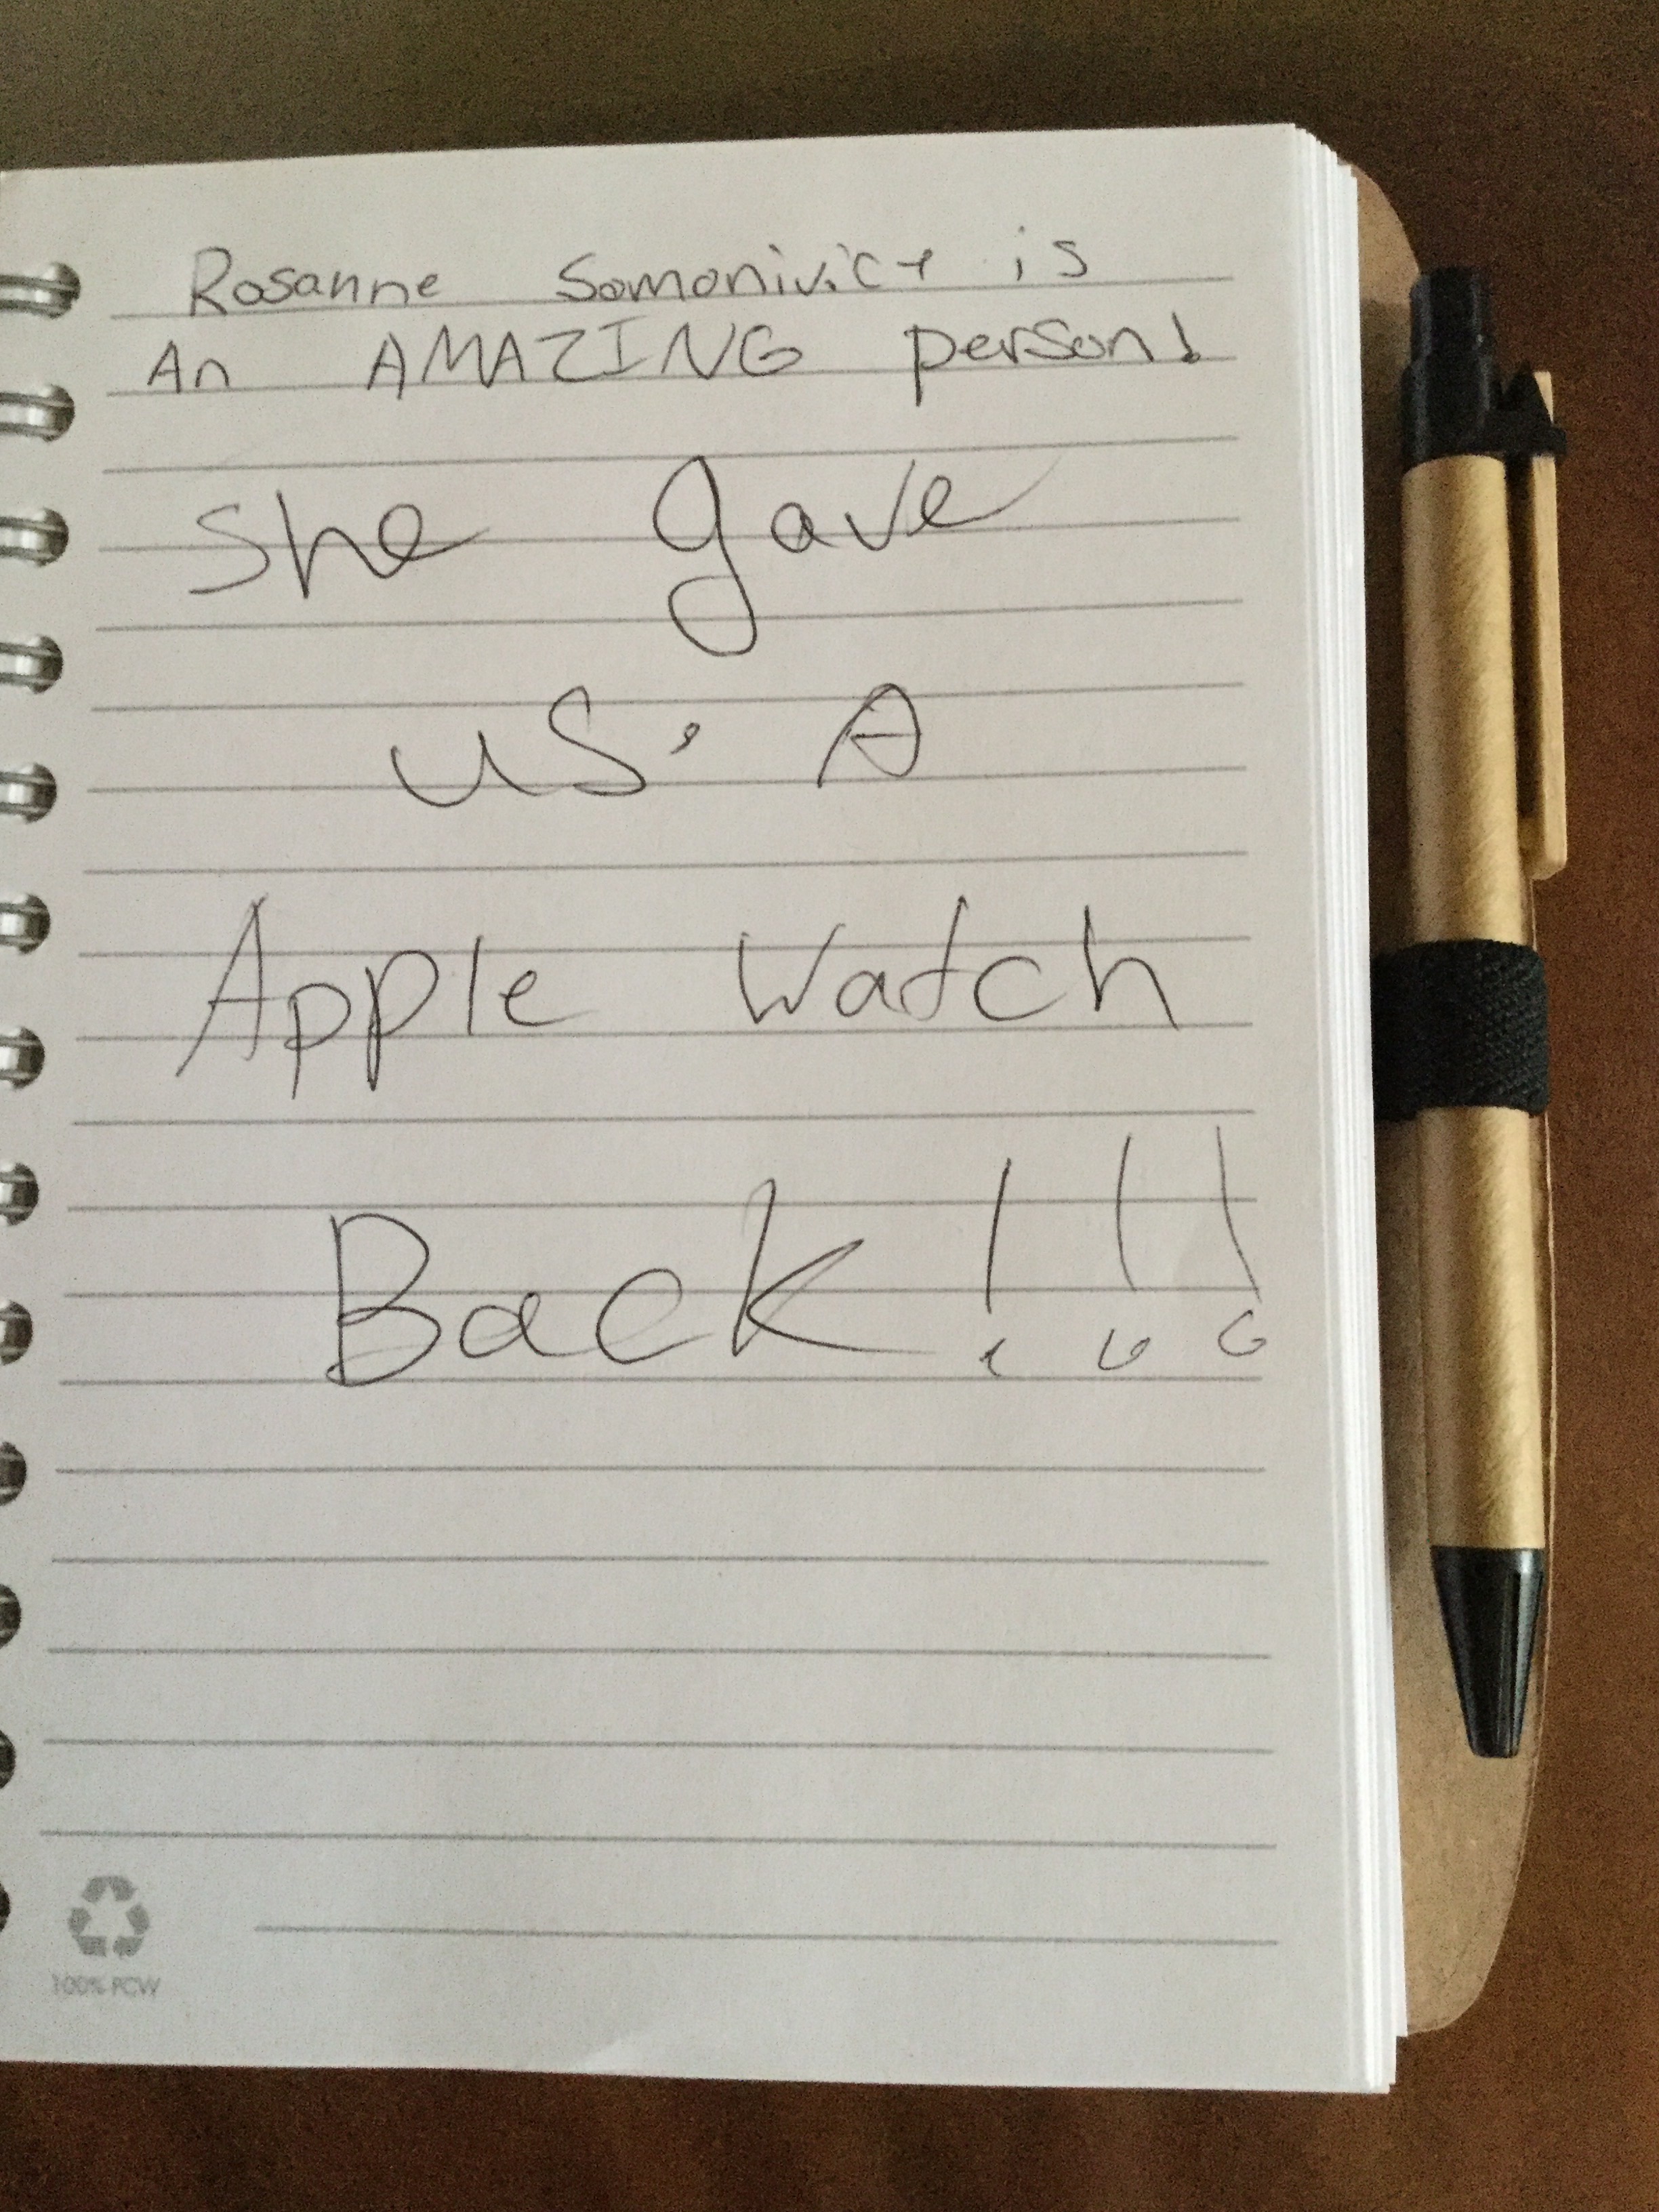 Rosanne Somonivict is
An AMAZING person!
She gave
us, A
Apple Watch
Back!!!
100% PCW